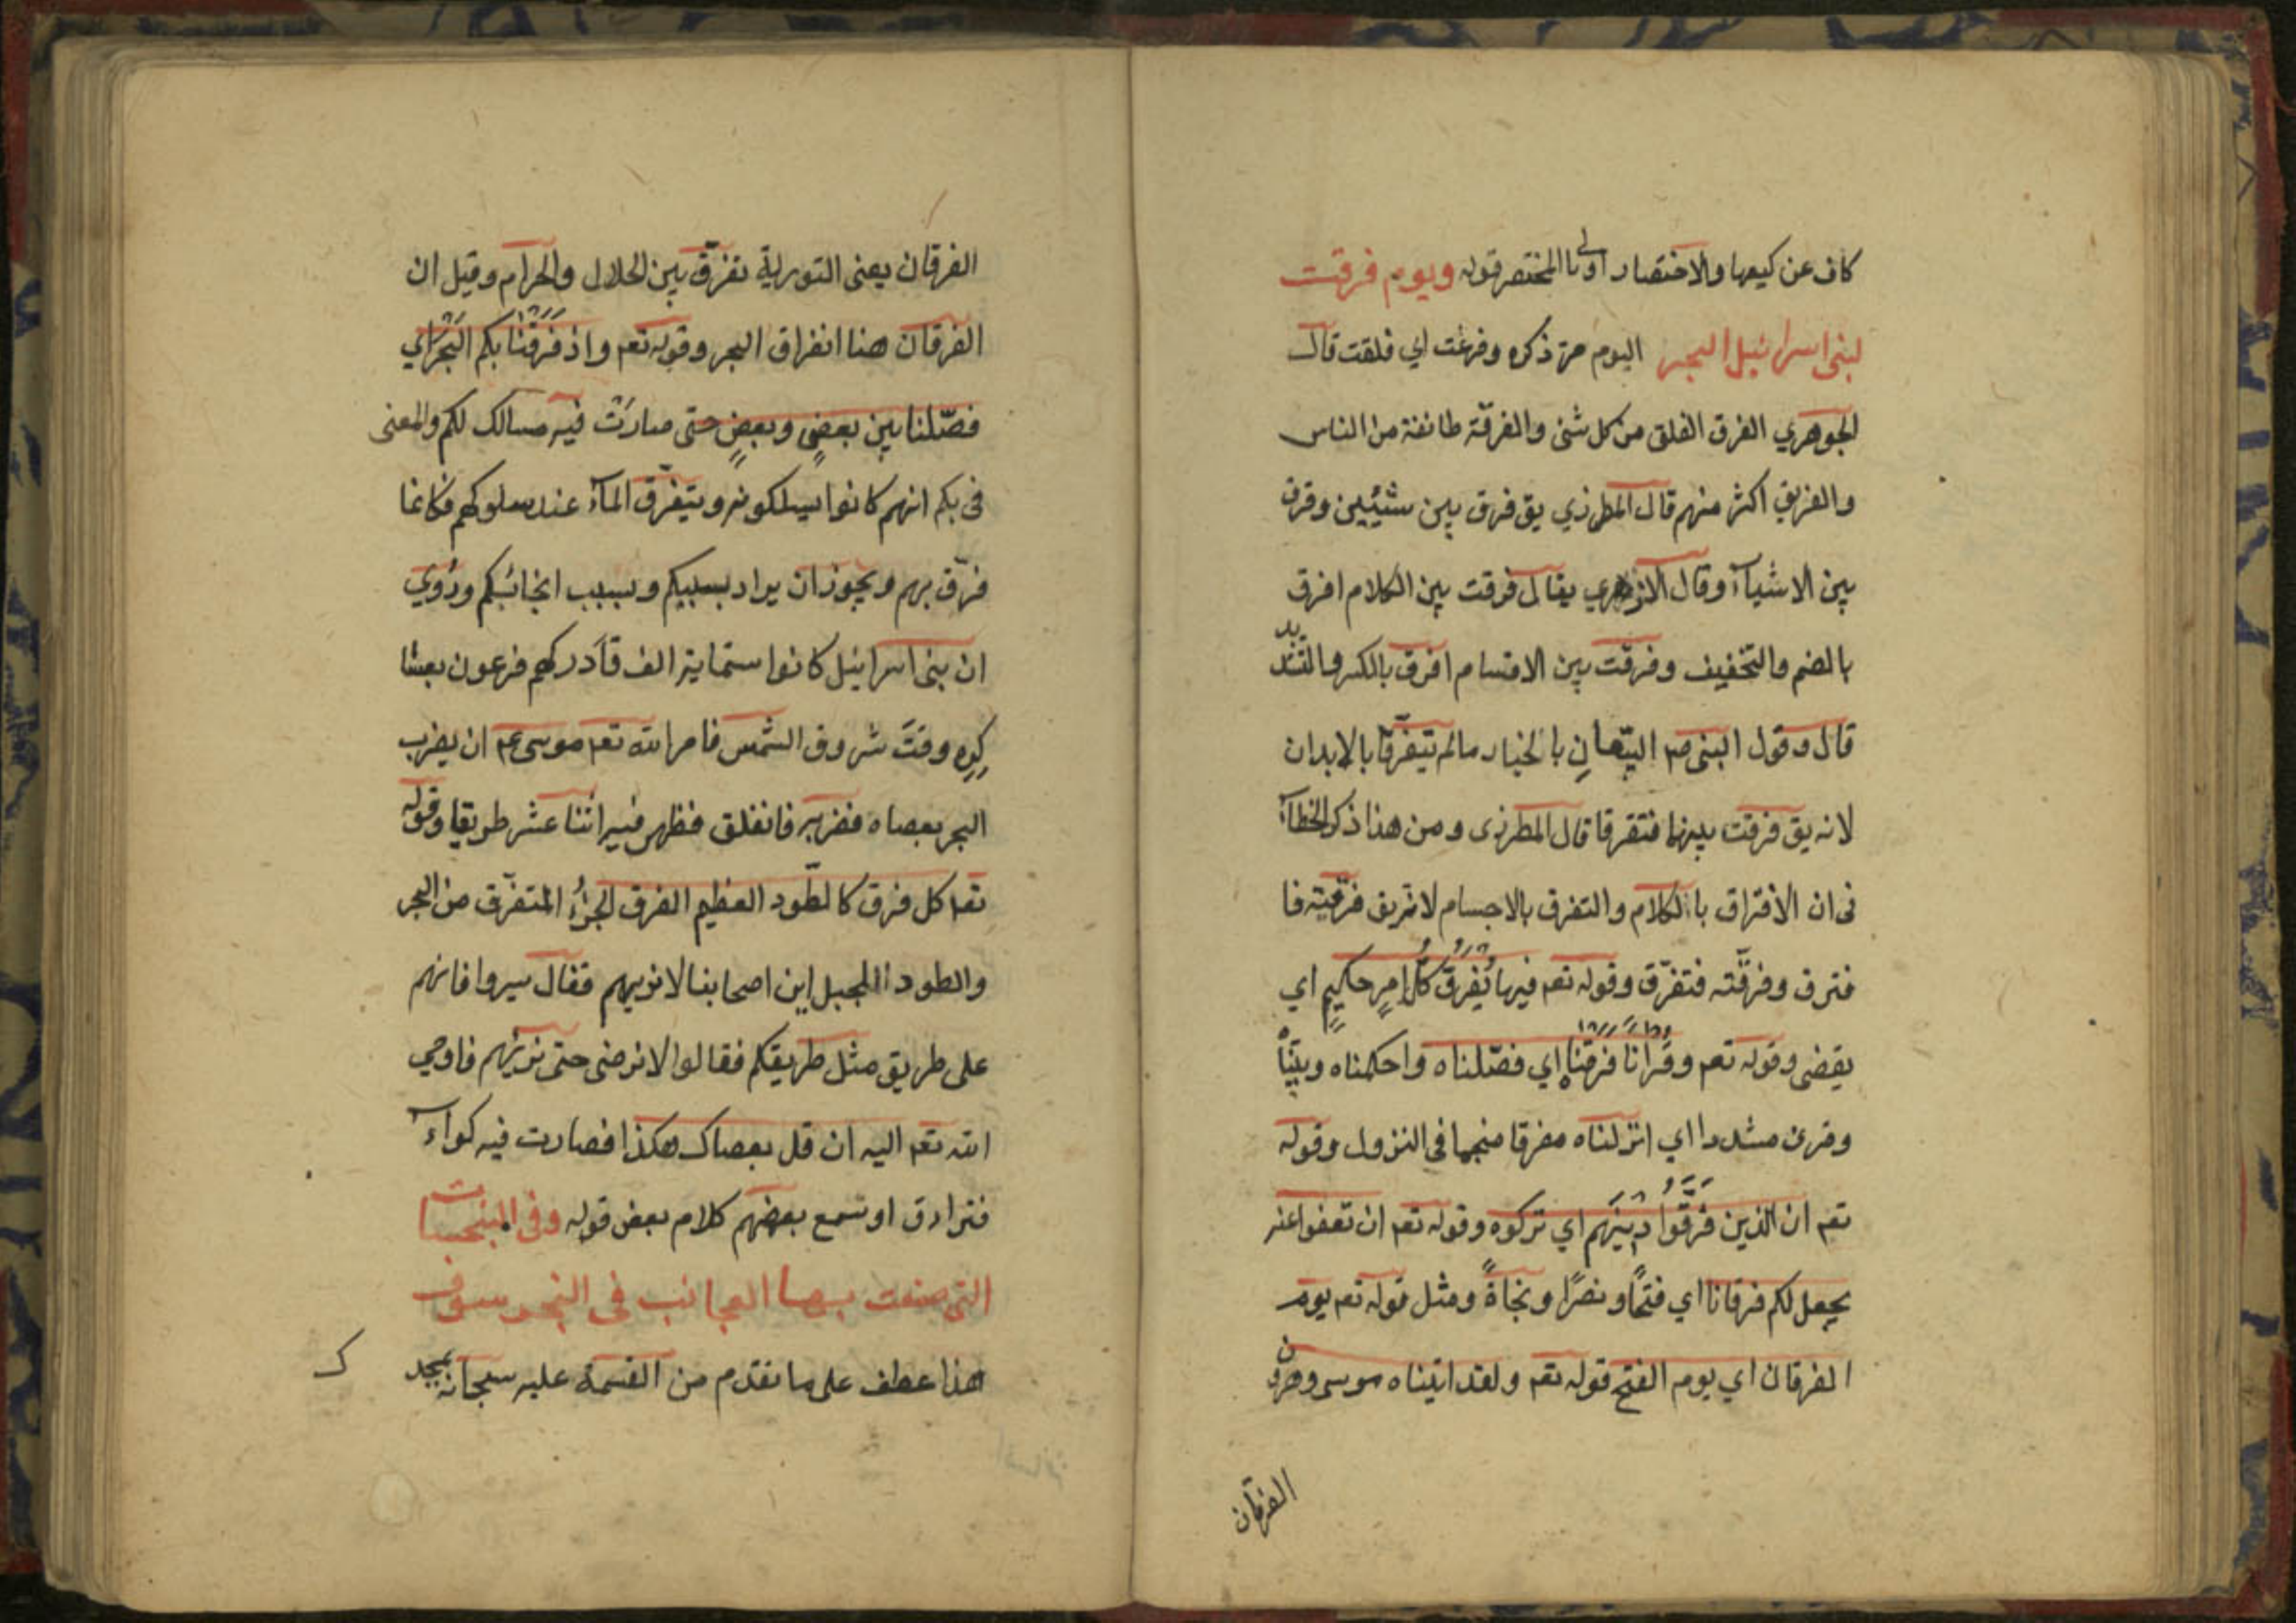 كاف عن كيعها والاختصار اولى بالمختصر قوله ويوم فرقت
لبنى اسرائيل البحر اليوم مر ذكره وفرقت اي فلقت قال
الجوهري الفرق الفلق من كل شئ والفرقة طائفة من الناس
والفريق اكثر منهم قال المطرزي يق فرق بين شيئين وفرق
بين الاشيآء وقال الازهري يقال فرقت بين الكلام افرق
بالضم والتخفيف وفرقت بين الاقسام افرق بالكسر والتشديد
قال وقول النبى صم البيّعان بالخيار مالم يتفرّقا بالابدان
لانه يق فرقت بينهما فتفرقا قال المطرزى ومن هذا ذكر الخطآء
فى ان الافتراق بالكلام والتفرق بالاجسام لانه يق فرقته فا
فترق وفرقّته فتفرّق وقوله تعم فيها يُفْرَقُ كُلُّ امرٍ حكيمٍ اي
يقضى وقوله تعم وقرانا فرقناه اي فصّلناه واحكمناه وبيّنّاه
وقرئ مشددا اي انزلناه مفرقا منجما فى النزول وقوله
تعم ان الذين فَرَّقُوا دِينَهم اي تركوه وقوله تعم ان تعفوا عنه
يجعل لكم فرقانا اي فتحًا ونصرًا ونجاةً ومثل قوله تعم يوم
الفرقان اي يوم الفتح قوله تعم ولقد اتيناه موسى وهرون
الفرقان
الفرقان يعنى التورية تفرّق بين الحلال والحرام وقيل ان
الفرقان هنا انفراق البحر وقوله تعم واذ فَرَقْنَا بكم البَحْرَ اي
فصّلنا بين بعضٍ وبعضٍ حتى صارَتْ فيه مسالك لكم والمعنى
فى بكم انهم كانوا يسلكونه ويتفرّق المآء عند سلوكهم فكانما
فرّق بهم ويجوز ان يراد بسببكم وبسبب انجائكم ورُوي
ان بنى اسرائيل كانوا ستماية الف فَادركهم فرعون بعسا
كره وقت شروق الشمس فامر الله تعم موسى عم ان يضرب
البحر بعصاه فضربه فانفلق فظهر فيه اثنا عشر طريقا وقوله
تعم كل فرق كالطّود العظيم الفرق الجزُء المتفرّق من البحر
والطود الجبل اين اصحابنا لانريهم فقال سيروا فانهم
على طريق مثل طريقكم فقالوا لانرضى حتى نريهم فاوحي
الله تعم اليه ان قل بعصاك هكذا فصارت فيه كواء
فترادق او تسمع بعضهم كلام بعض قوله وفى المنبجسات
التى صنعت بها العجائب فى البحر سوف
هذا عطف على ما تقدم من القسمة عليه سبحانه بمجد